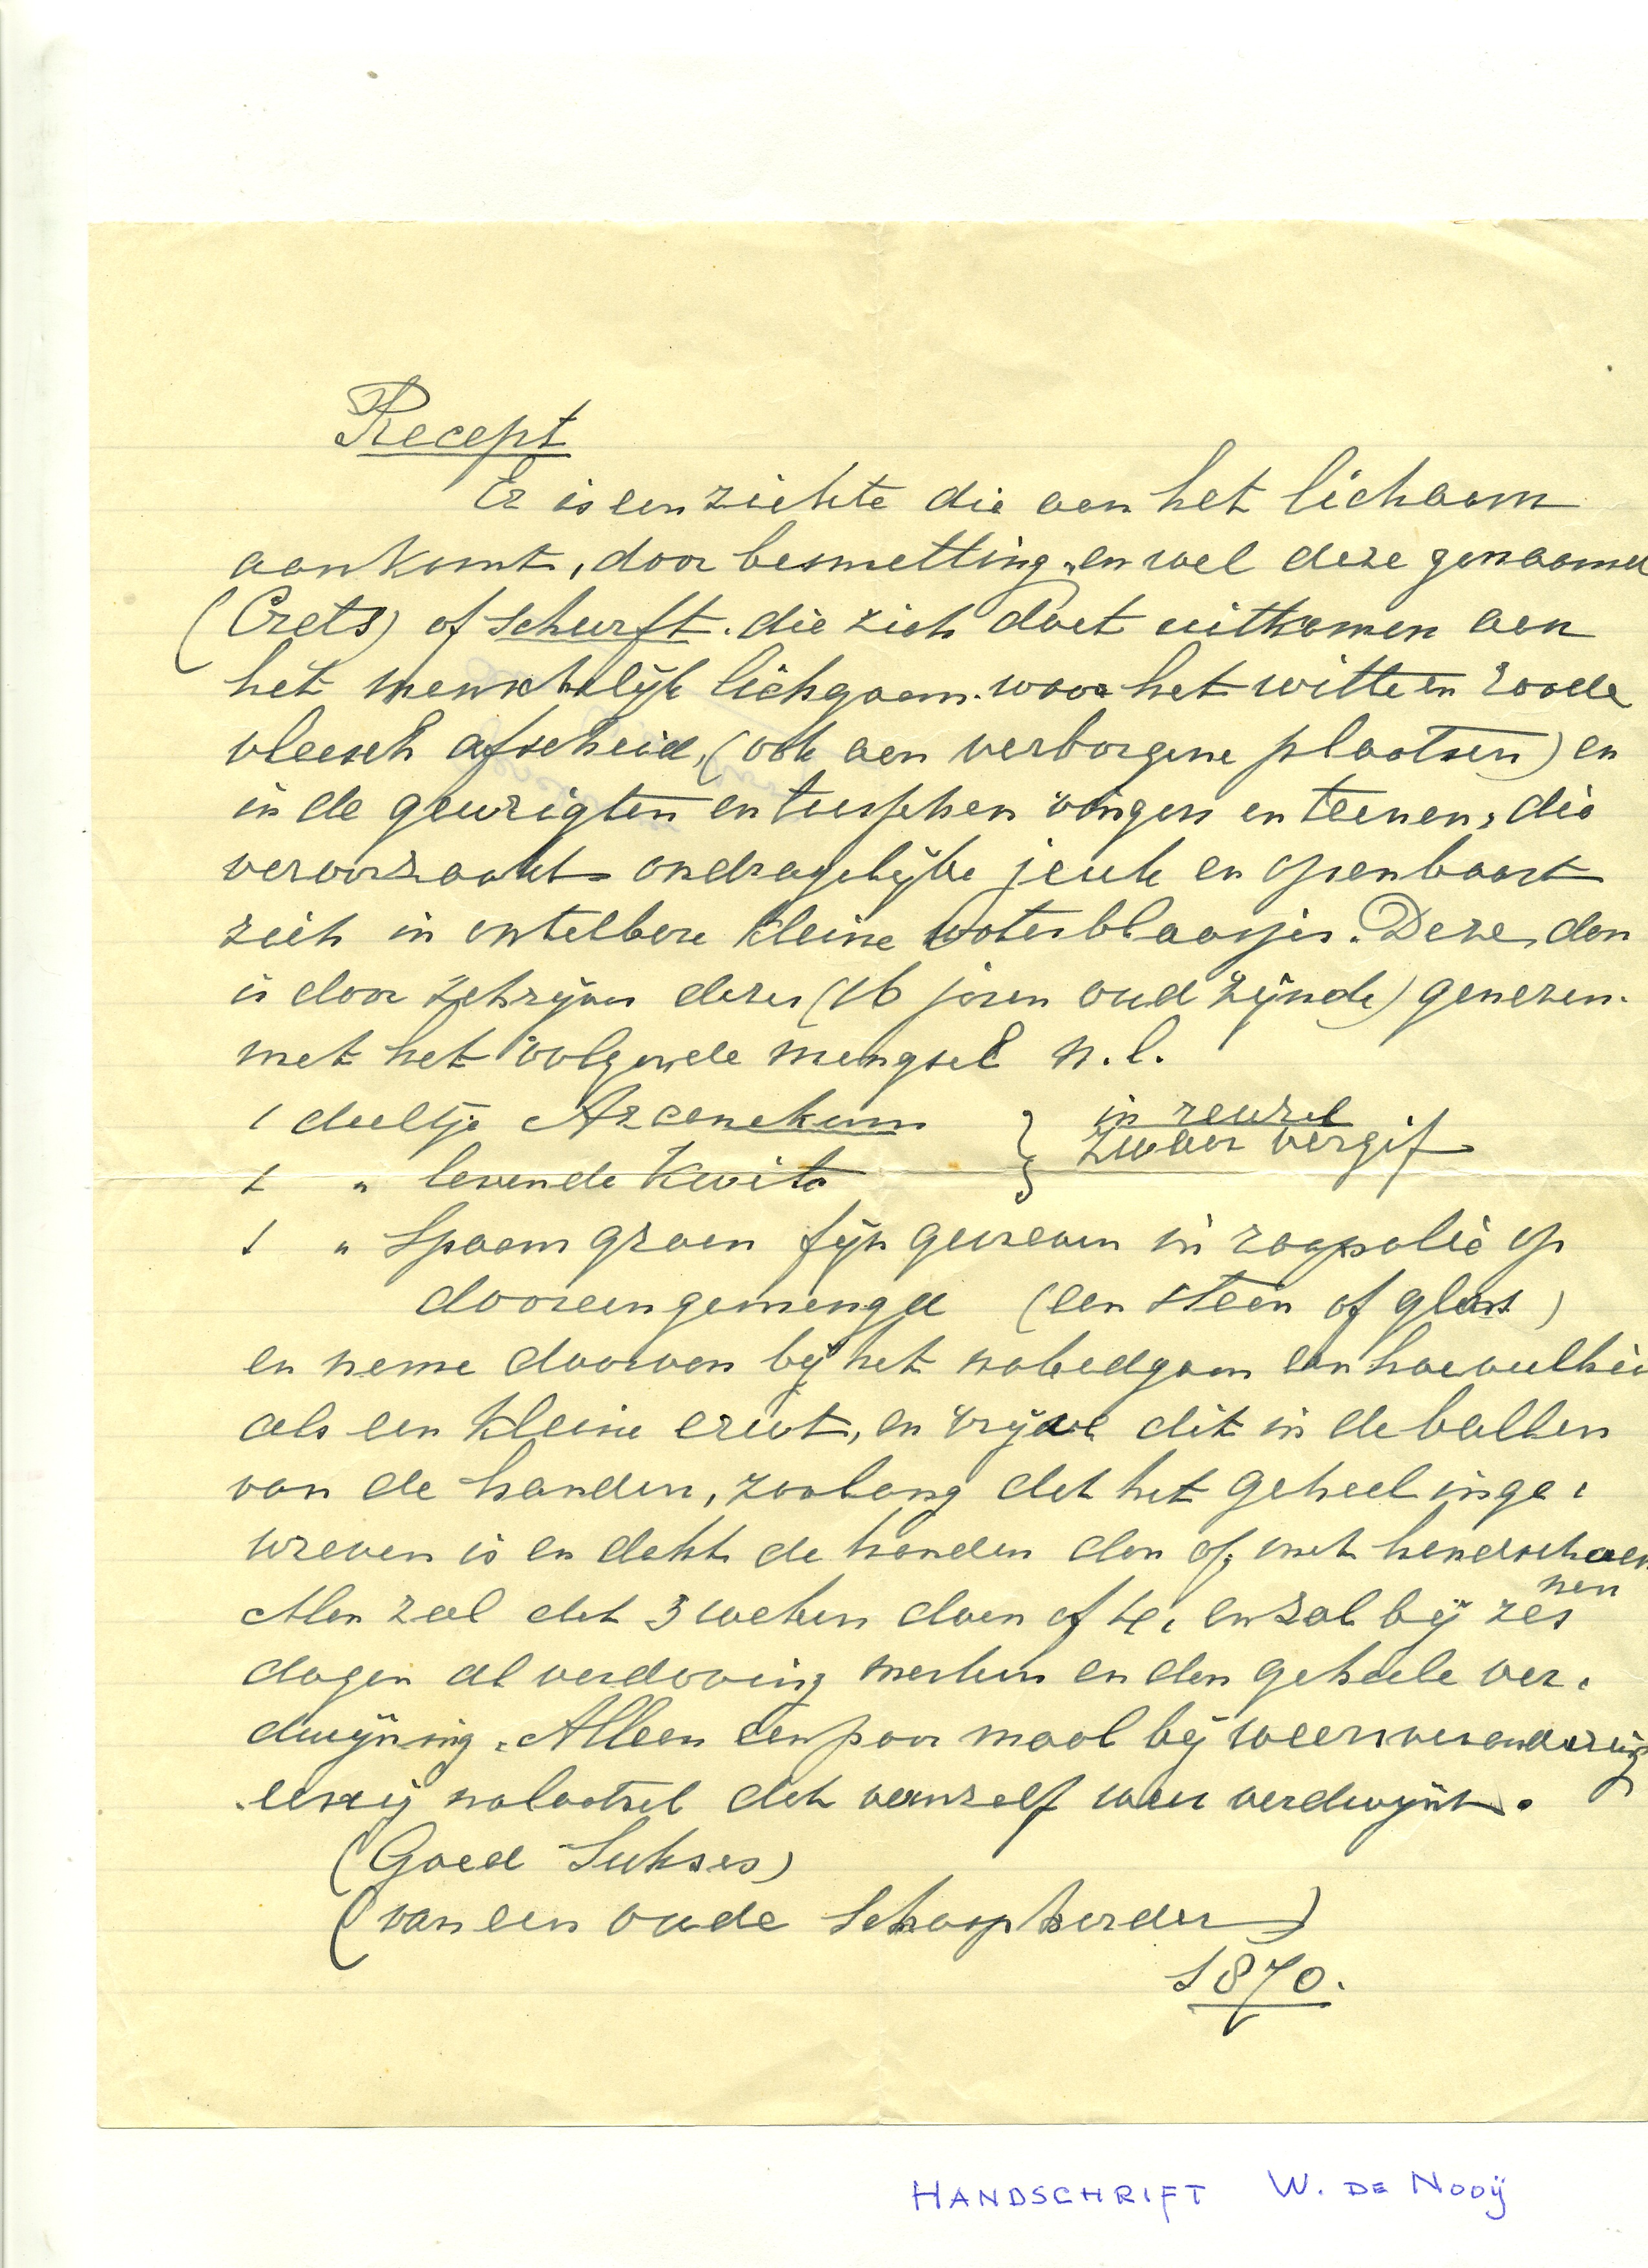 Recept
Er is een ziekte die aan het lichaam
aankomt, door besmetting, en wel deze genaamd
(Crets) of schurft. die zich doet uitkomen aan
het menschelijk lichgaam. waar het witte en roode
vleesch afscheid, (ook aan verborgene plaatsen) en
in de gewrigten en tusschen vingers en teenen, die
veroorzaakt ondragelijke jeuk en openbaart
zich in ontelbare kleine waterblaasjes. Deze dan
is door schrijver dezes (16 jaren oud zijnde) genezen.
met het volgende mengsel n.l.
1 deeltje Arcenekum } in reuzel
zwaar vergif
1 " levende Kwik
1 " Spaans groen fijn gewreven in raapolie op
dooreengemengd (een steen of glas)
en neme daarvan bij het nabedgaan een hoeveelhei
als een kleine erwt, en wrijve dit in de ballen
van de handen, zoolang dat het geheel inge.
wreven is en dekt de handen dan af, met handschoen
nen
Men zal dat 3 weken doen of 4, en zal bij zes
dagen al verdooving merken en dan geheele ver.
dwijning. Alleen een paar maal bij weersverandering
eenig nalaatsel dat vanzelf weer verdwijnt.
(Goed Sukses)
(van een oude Schaapherder)
1870.
HANDSCHRIFT W. DE NOOIJ